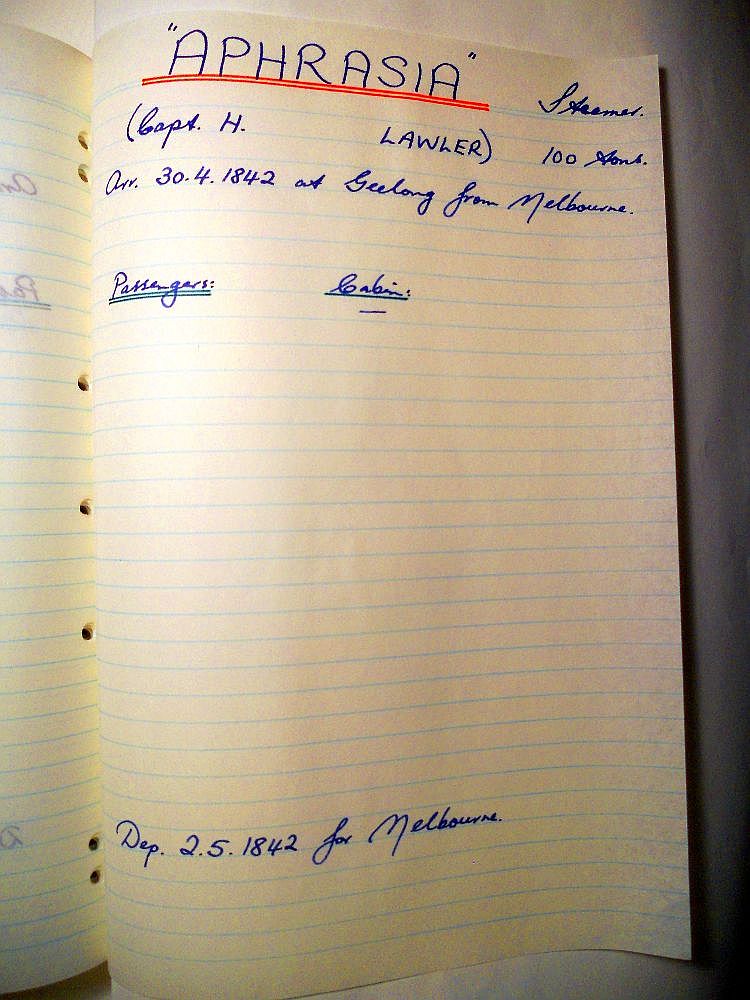 "APHRASIA" Steamer.
(Capt. H. LAWLER) 100 tons.
Arr. 30.4.1842 at Geelong from Melbourne.
Passengers: Cabin:
—
Dep. 2.5.1842 for Melbourne.